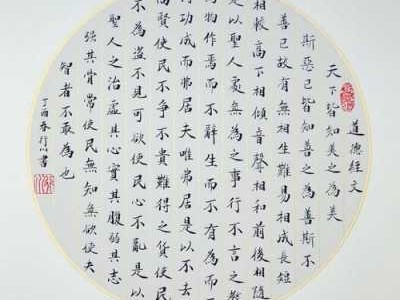 道德經文
天下皆知美之為美
斯惡已皆知善之為善斯不
善已故有無相生難易相成長短
相較高下相傾音聲相和前後相隨
是以聖人處無為之事行不言之教
物作焉而不辭生而不有為而不
功成而弗居夫唯弗居是以不去
尚賢使民不爭不貴難得之貨使民
不為盜不見可欲使民心不亂是以
聖人之治虛其心實其腹弱其志
強其骨常使民無知無欲使夫
智者不敢為也
丁酉春行書